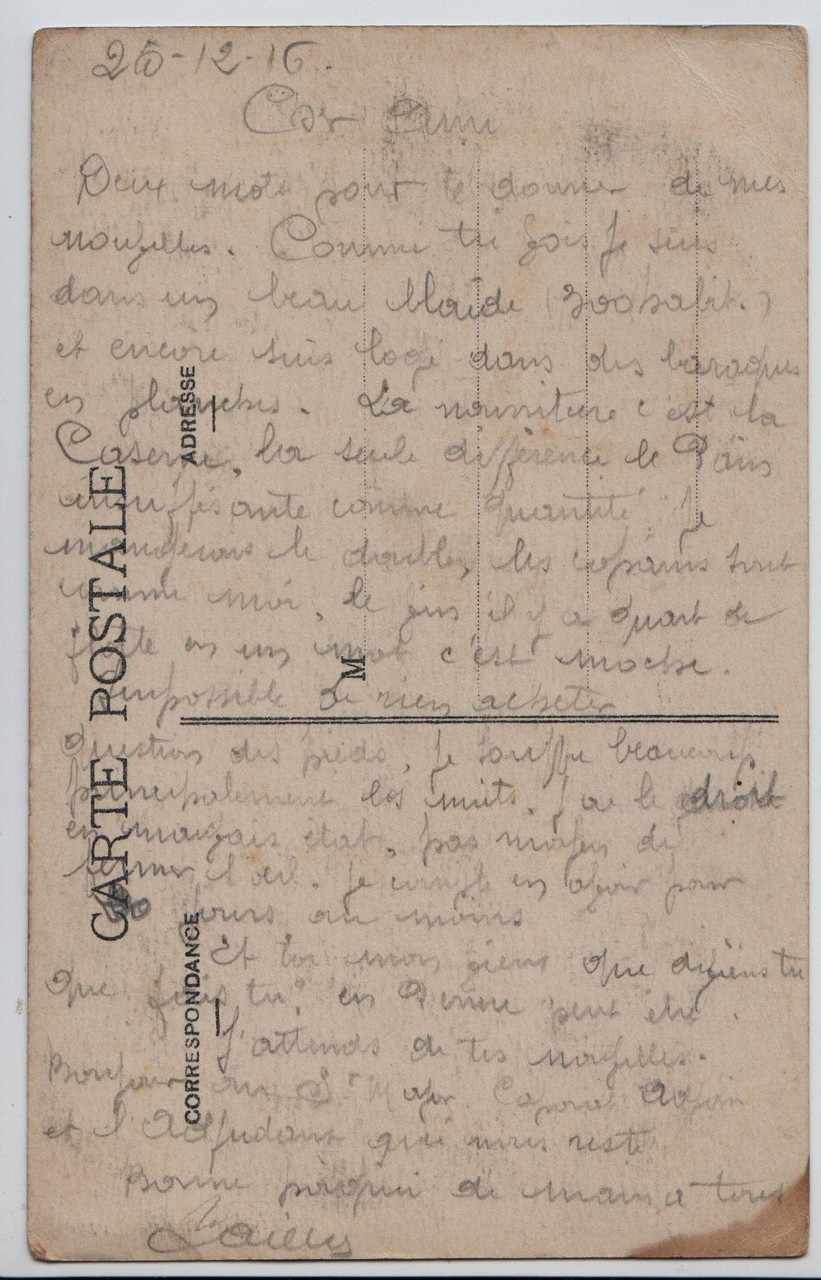 26-12-16.
Cher Ami
Deux mots pour te donner de mes
nouvelles. Comme tu vois je suis
dans un beau (300 habit.)
et encore suis logé dans des baraques
en planches. La nourriture c'est la
Caserne, la seule différence le Pain
insuffisante comme quantité. Je
mangerais le double, les copains sont
comme moi, le jus il y a quart de
flotte en un mot c'est moche.
Impossible de rien acheter
Question des pieds, je souffre beaucoup
principalement les nuits. J'ai le droit
en mauvais état, pas moyen de
fermer l'œil. Je compte en avoir pour
jours au moins
Et toi mon vieux que deviens tu
Que fais tu? en Perme peut être.
J'attends de tes nouvelles.
Bonjour au St Major Caporal
et l'Adjudant qui nous reste
Bonne poignée de main à tous
CARTE POSTALE
CORRESPONDANCE
ADRESSE
M